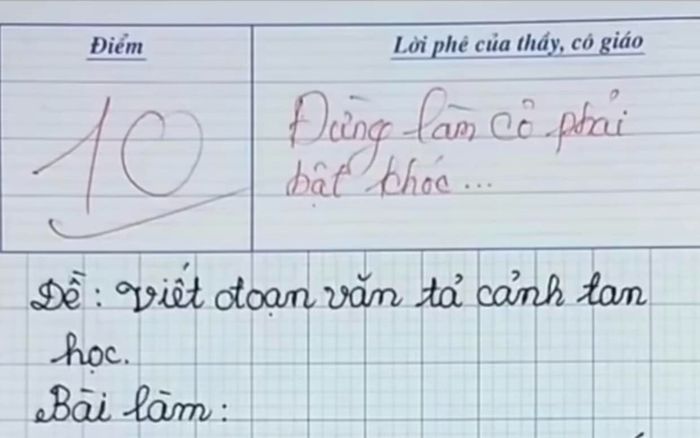 Điểm
Lời phê của thầy, cô giáo
10
Đừng làm cô phải
bật khóc...
Đề: Viết đoạn văn tả cảnh tan
học.
Bài làm: